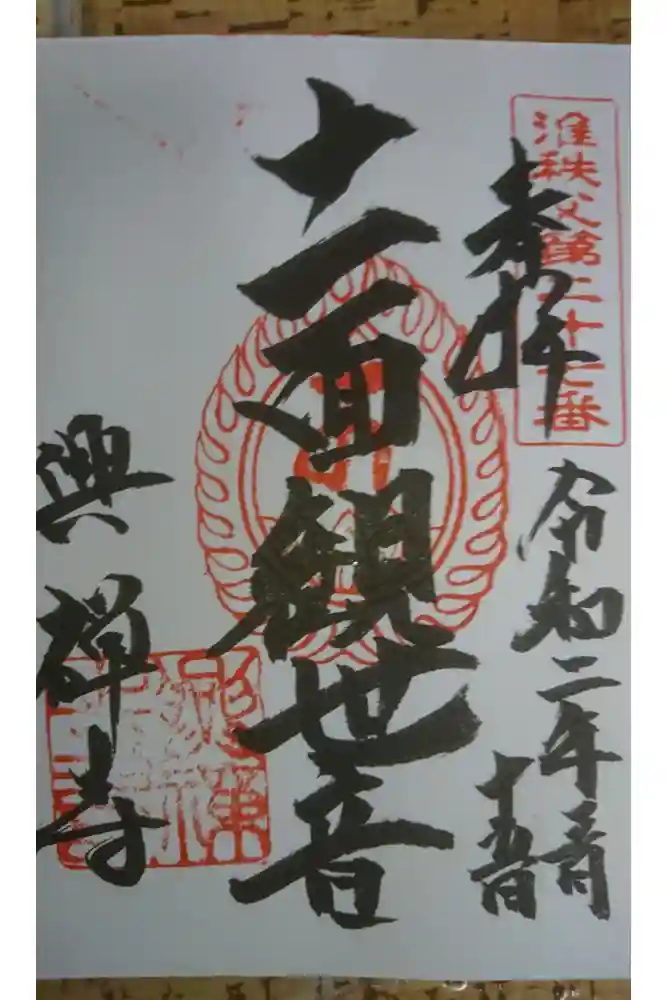 准秩父第二十七番
奉拝
令和二年
十五日
十一面観世音
興禅寺